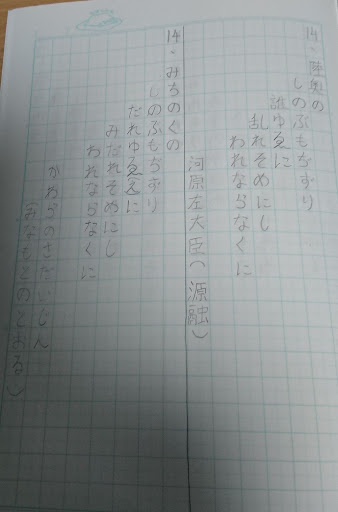 14、陸奥の
しのぶもぢずり
誰ゆゑに
乱れそめにし
われならなくに
河原左大臣(源融)
14、みちのくの
しのぶもぢずり
だれゆゑ(え)に
みだれそめにし
われならなくに
かわらのさだいじん
(みなもとのとおる)